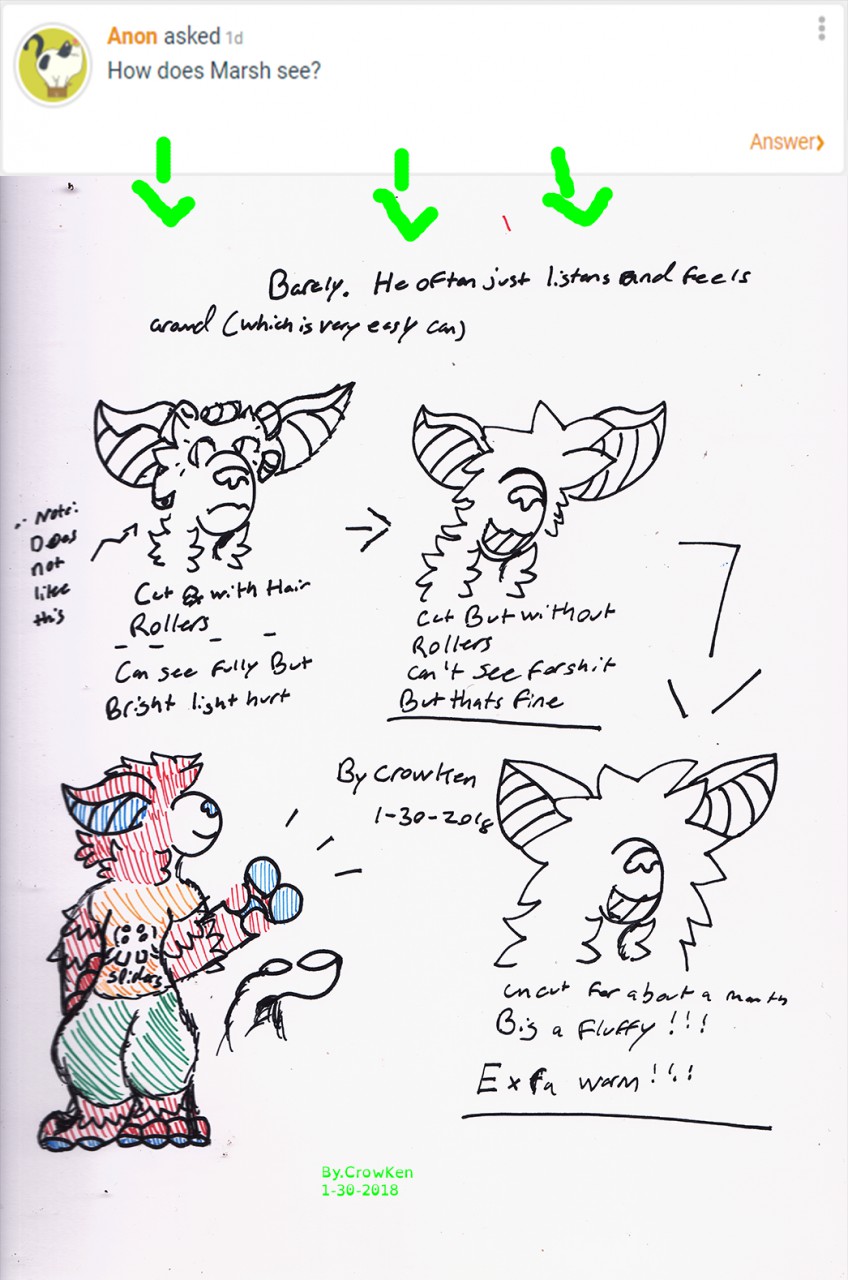 Anon asked 1d
How does Marsh see?
Answer›
Barely. He often just listens and feels
around (which is very easy can)
Note:
Does
not
like
this
Cut with Hair
Rollers
Can see fully But
Bright light hurt
Cut But without
Rollers
Can't see forshit
But thats fine
By CrowKen
1-30-2018
Sliders
uncut for about a month
Big a Fluffy!!!
Exfa warm!!!
By.CrowKen
1-30-2018